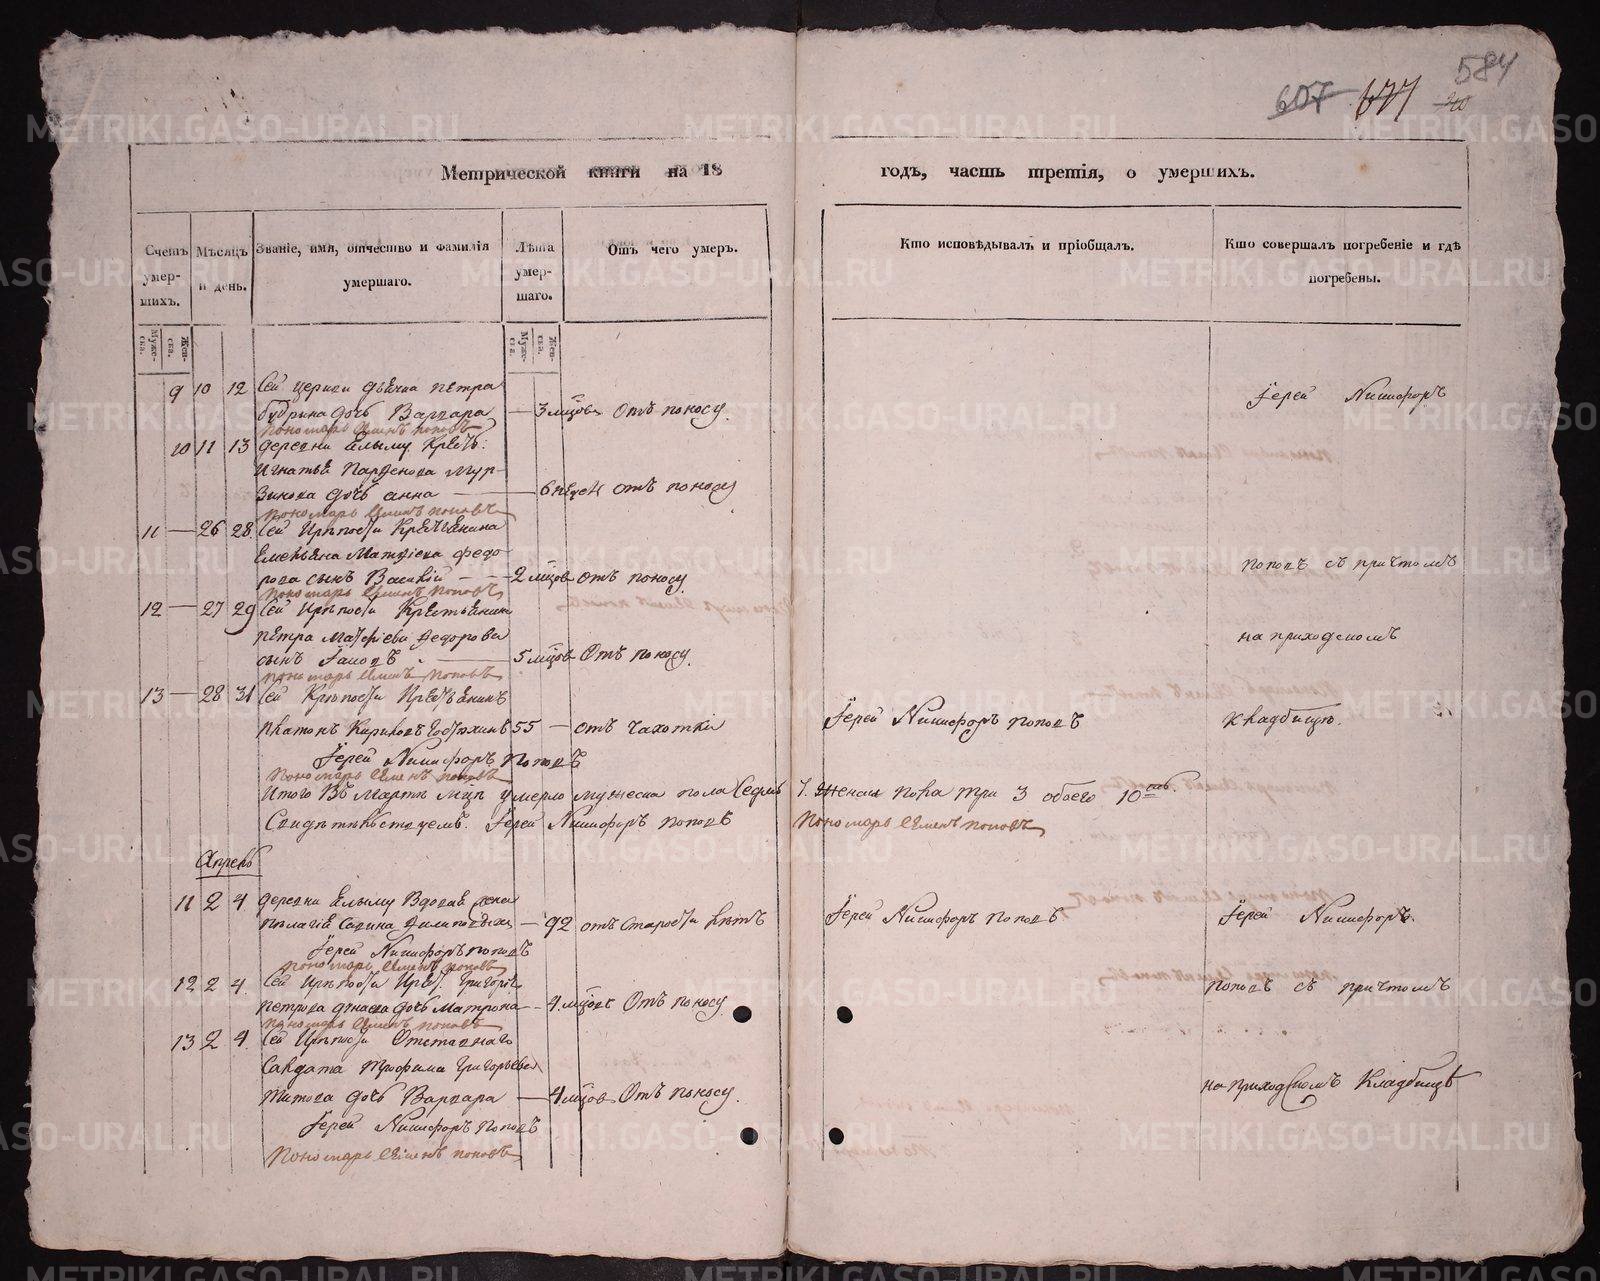 584
607 677 20
Метрической книги на 18 годъ, часть третія, о умершихъ.
Счетъ умер-шихъ.
Мѣсяцъ и день.
Званіе, имя, отчество и фамилія умершаго.
Лѣта умер-шаго.
Отъ чего умеръ.
Кто исповѣдывалъ и пріобщалъ.
Кто совершалъ погребеніе и гдѣ погребены.
Муже-ска. Жен-ска.
Муже-ска. Жен-ска.
9 10 12 Сей церкви дьячка петра
бубнина дочь Варвара — 3 мцовъ Отъ поносу.
Іерей Никифоръ
пономарь Семенъ поповъ
10 11 13 деревни Елыму Крест:
Игнатья Парфенова Мур-
зинова дочь анна — 6 недел отъ поносу
пономарь Семенъ поповъ
11 — 26 28 Сей Крѣпости Крестьянина
Емельяна Матфіева федо-
рова сынъ Василій — 2 мцовъ отъ поносу.
поповъ съ причтомъ
пономарь Семенъ поповъ
12 — 27 29 Сей Крѣпости Крестьянина
петра Матфіева Федорова
на приходскомъ
сынъ Іаковъ — 5 мцовъ Отъ поносу.
пономарь Семенъ поповъ
13 — 28 31 Сей Крѣпости Крестьянинъ
платонъ Кириловъ 55 — отъ чахотки
Іерей Никифоръ поповъ
кладбище.
Іерей Никифоръ Поповъ
пономарь Семенъ поповъ
Итого Въ Мартѣ мцѣ умерло мужеска пола Седмь 7. женска пола три 3 обоего 10ть.
Свидѣтельствуемъ. Іерей Никифоръ поповъ
Пономарь Семенъ поповъ
Апрель
11 2 4 деревни Елыму Вдовая жена
пелагія Савина Филиповыхъ — 92 отъ Старости лѣтъ
Іерей Никифоръ поповъ
Іерей Никифоръ.
Іерей Никифоръ поповъ
пономарь Семенъ поповъ
12 2 4 Сей Крѣпости Крест. Григорія
петрова дочь Матрона — 4 мцовъ Отъ поносу
поповъ съ причтомъ
пономарь Семенъ поповъ
13 2 4. Сей Крѣпости Отставнаго
Салдата Трофима Григорьева
на приходскомъ Кладбищѣ
Титова дочь Варвара — 4 мцовъ Отъ поносу.
Іерей Никифоръ поповъ
Пономарь Семенъ поповъ
METRIKI.GASO-URAL.RU